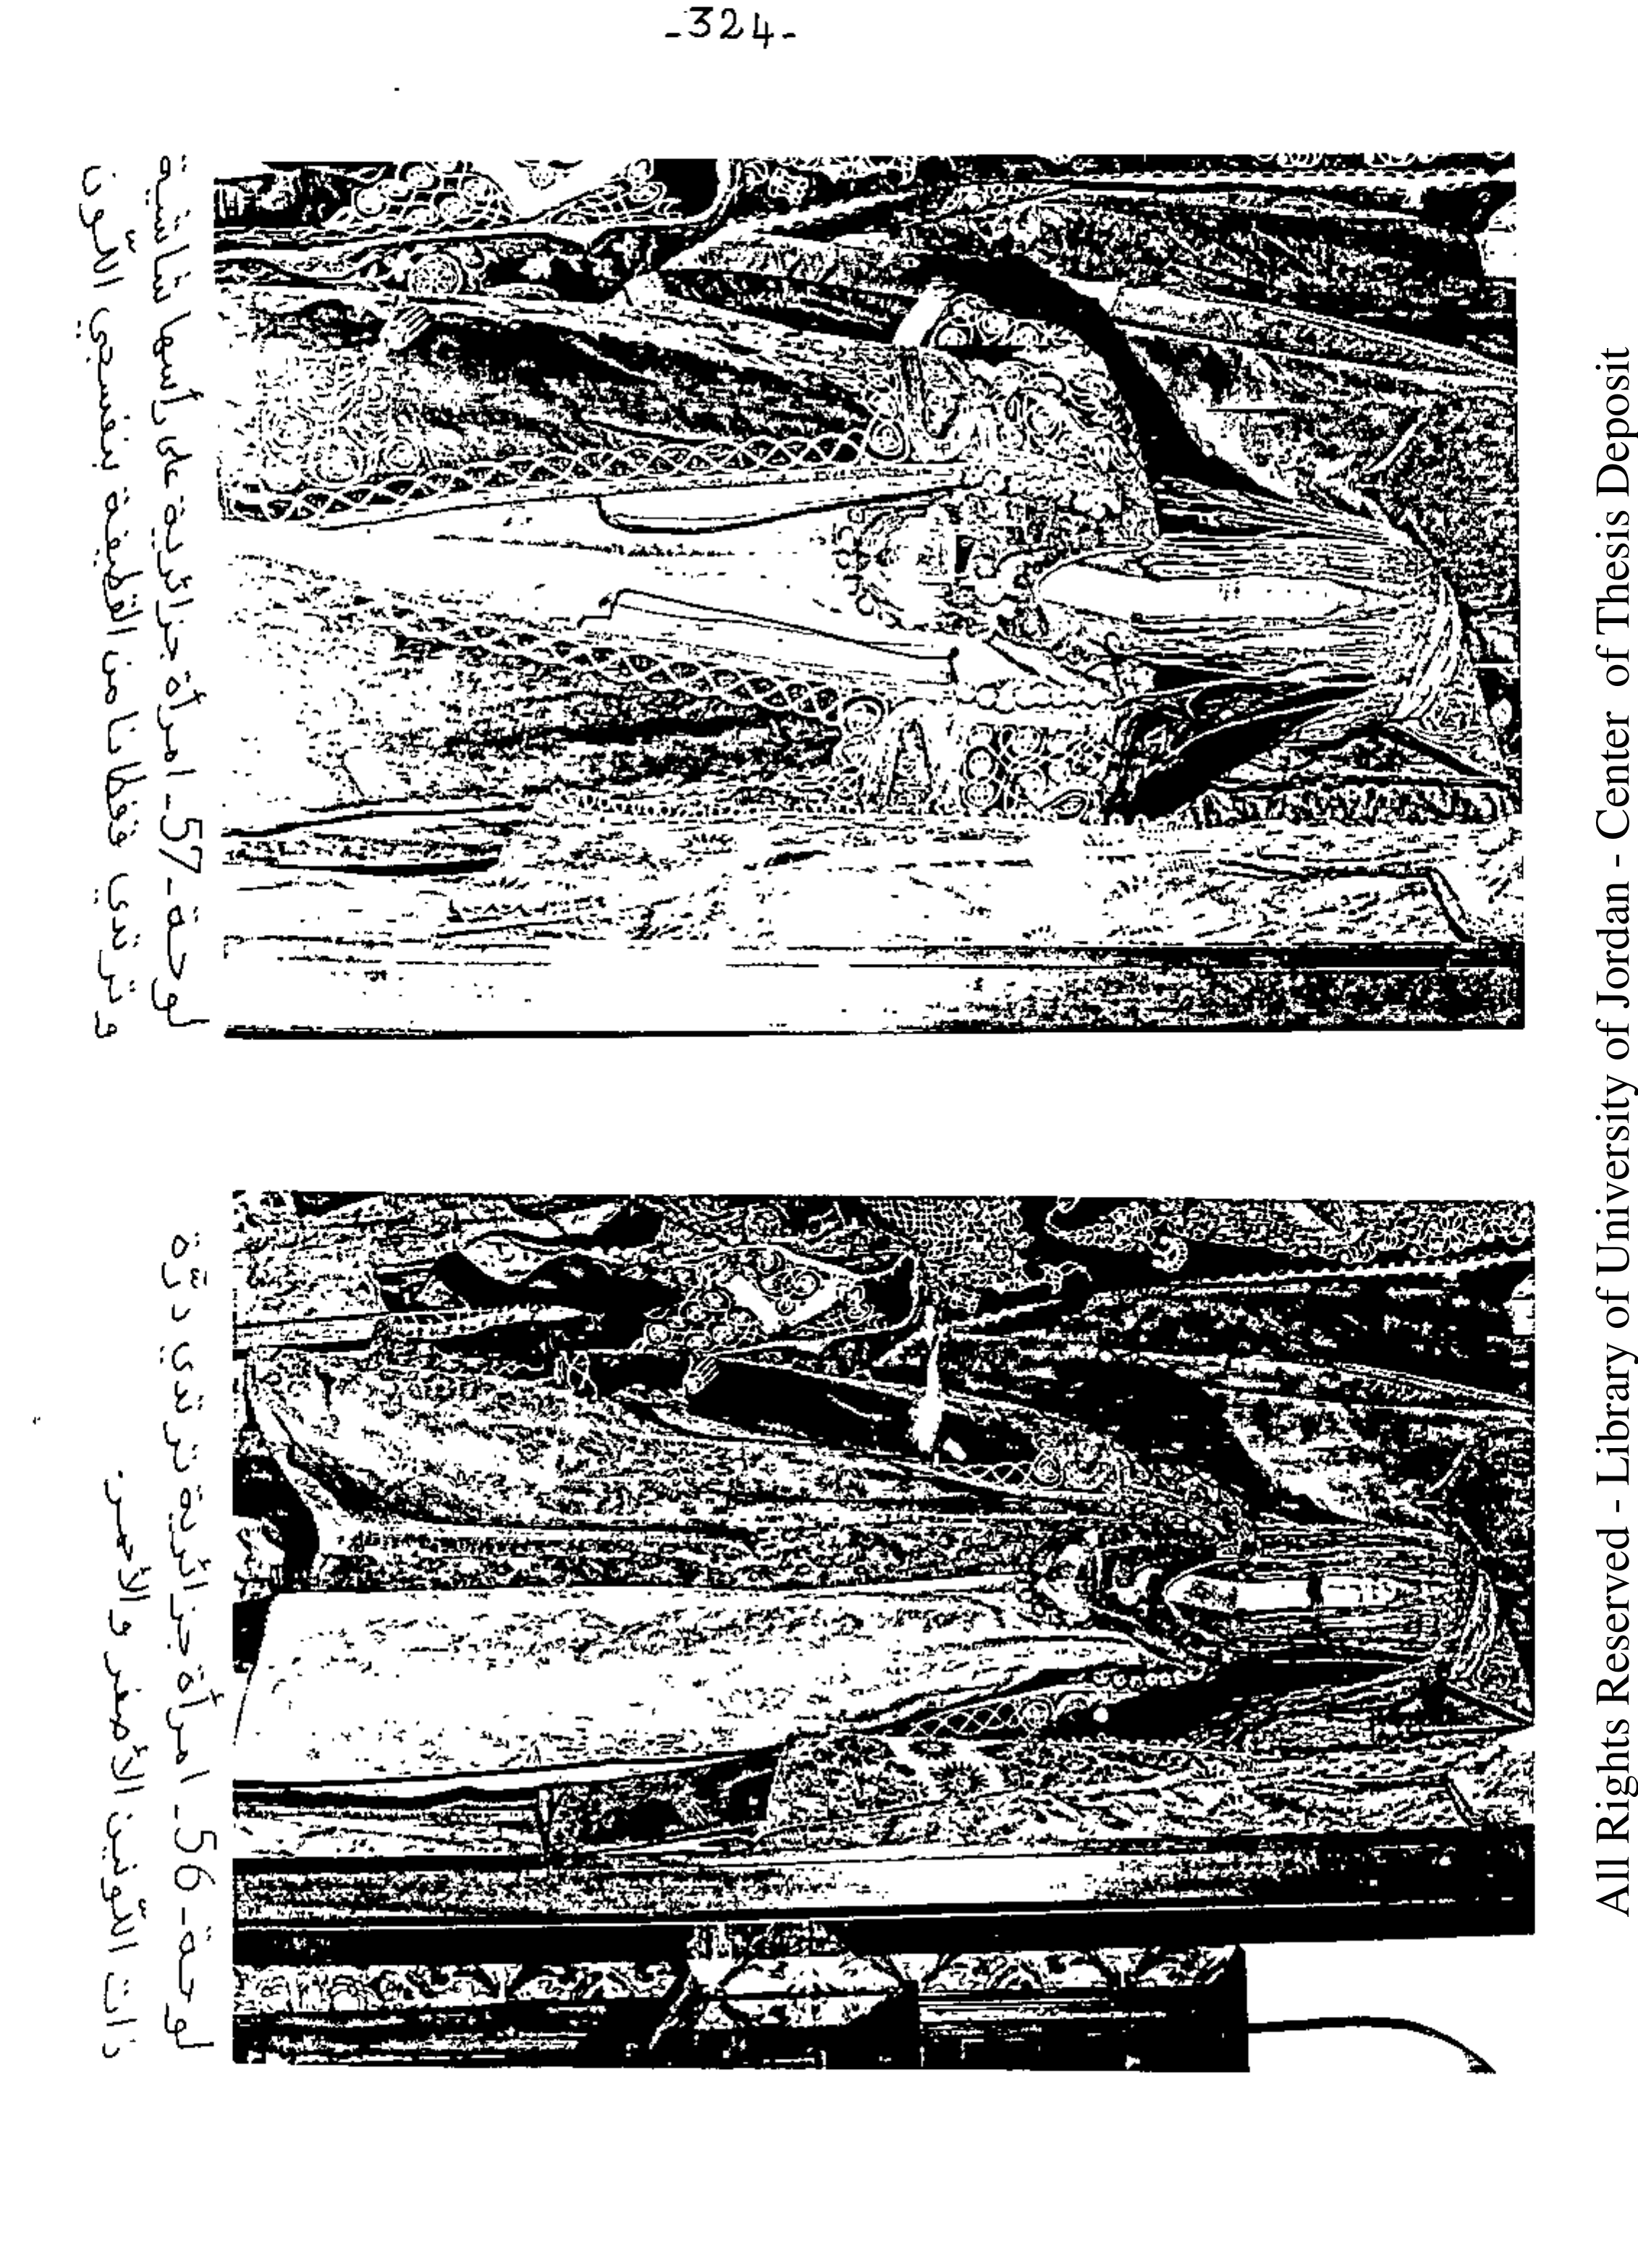 -324-
لوحة -57- امرأة جزائرية على رأسها شاشية
و ترتدي قفطانا من القطيفة بنفسجي اللّون
لوحة -56- امرأة جزائرية ترتدي درّة
ذات اللّونين الأصفر والأحمر.
All Rights Reserved - Library of University of Jordan - Center of Thesis Deposit